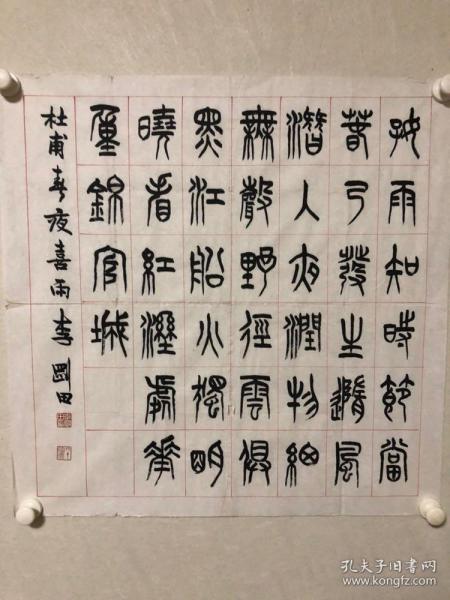 好雨知時節當
春乃發生隨風
潛入夜潤物細
無聲野徑雲俱
黑江船火獨明
曉看紅溼處華
重錦官城
杜甫春夜喜雨李剛田
孔夫子旧书网
www.kongfz.com